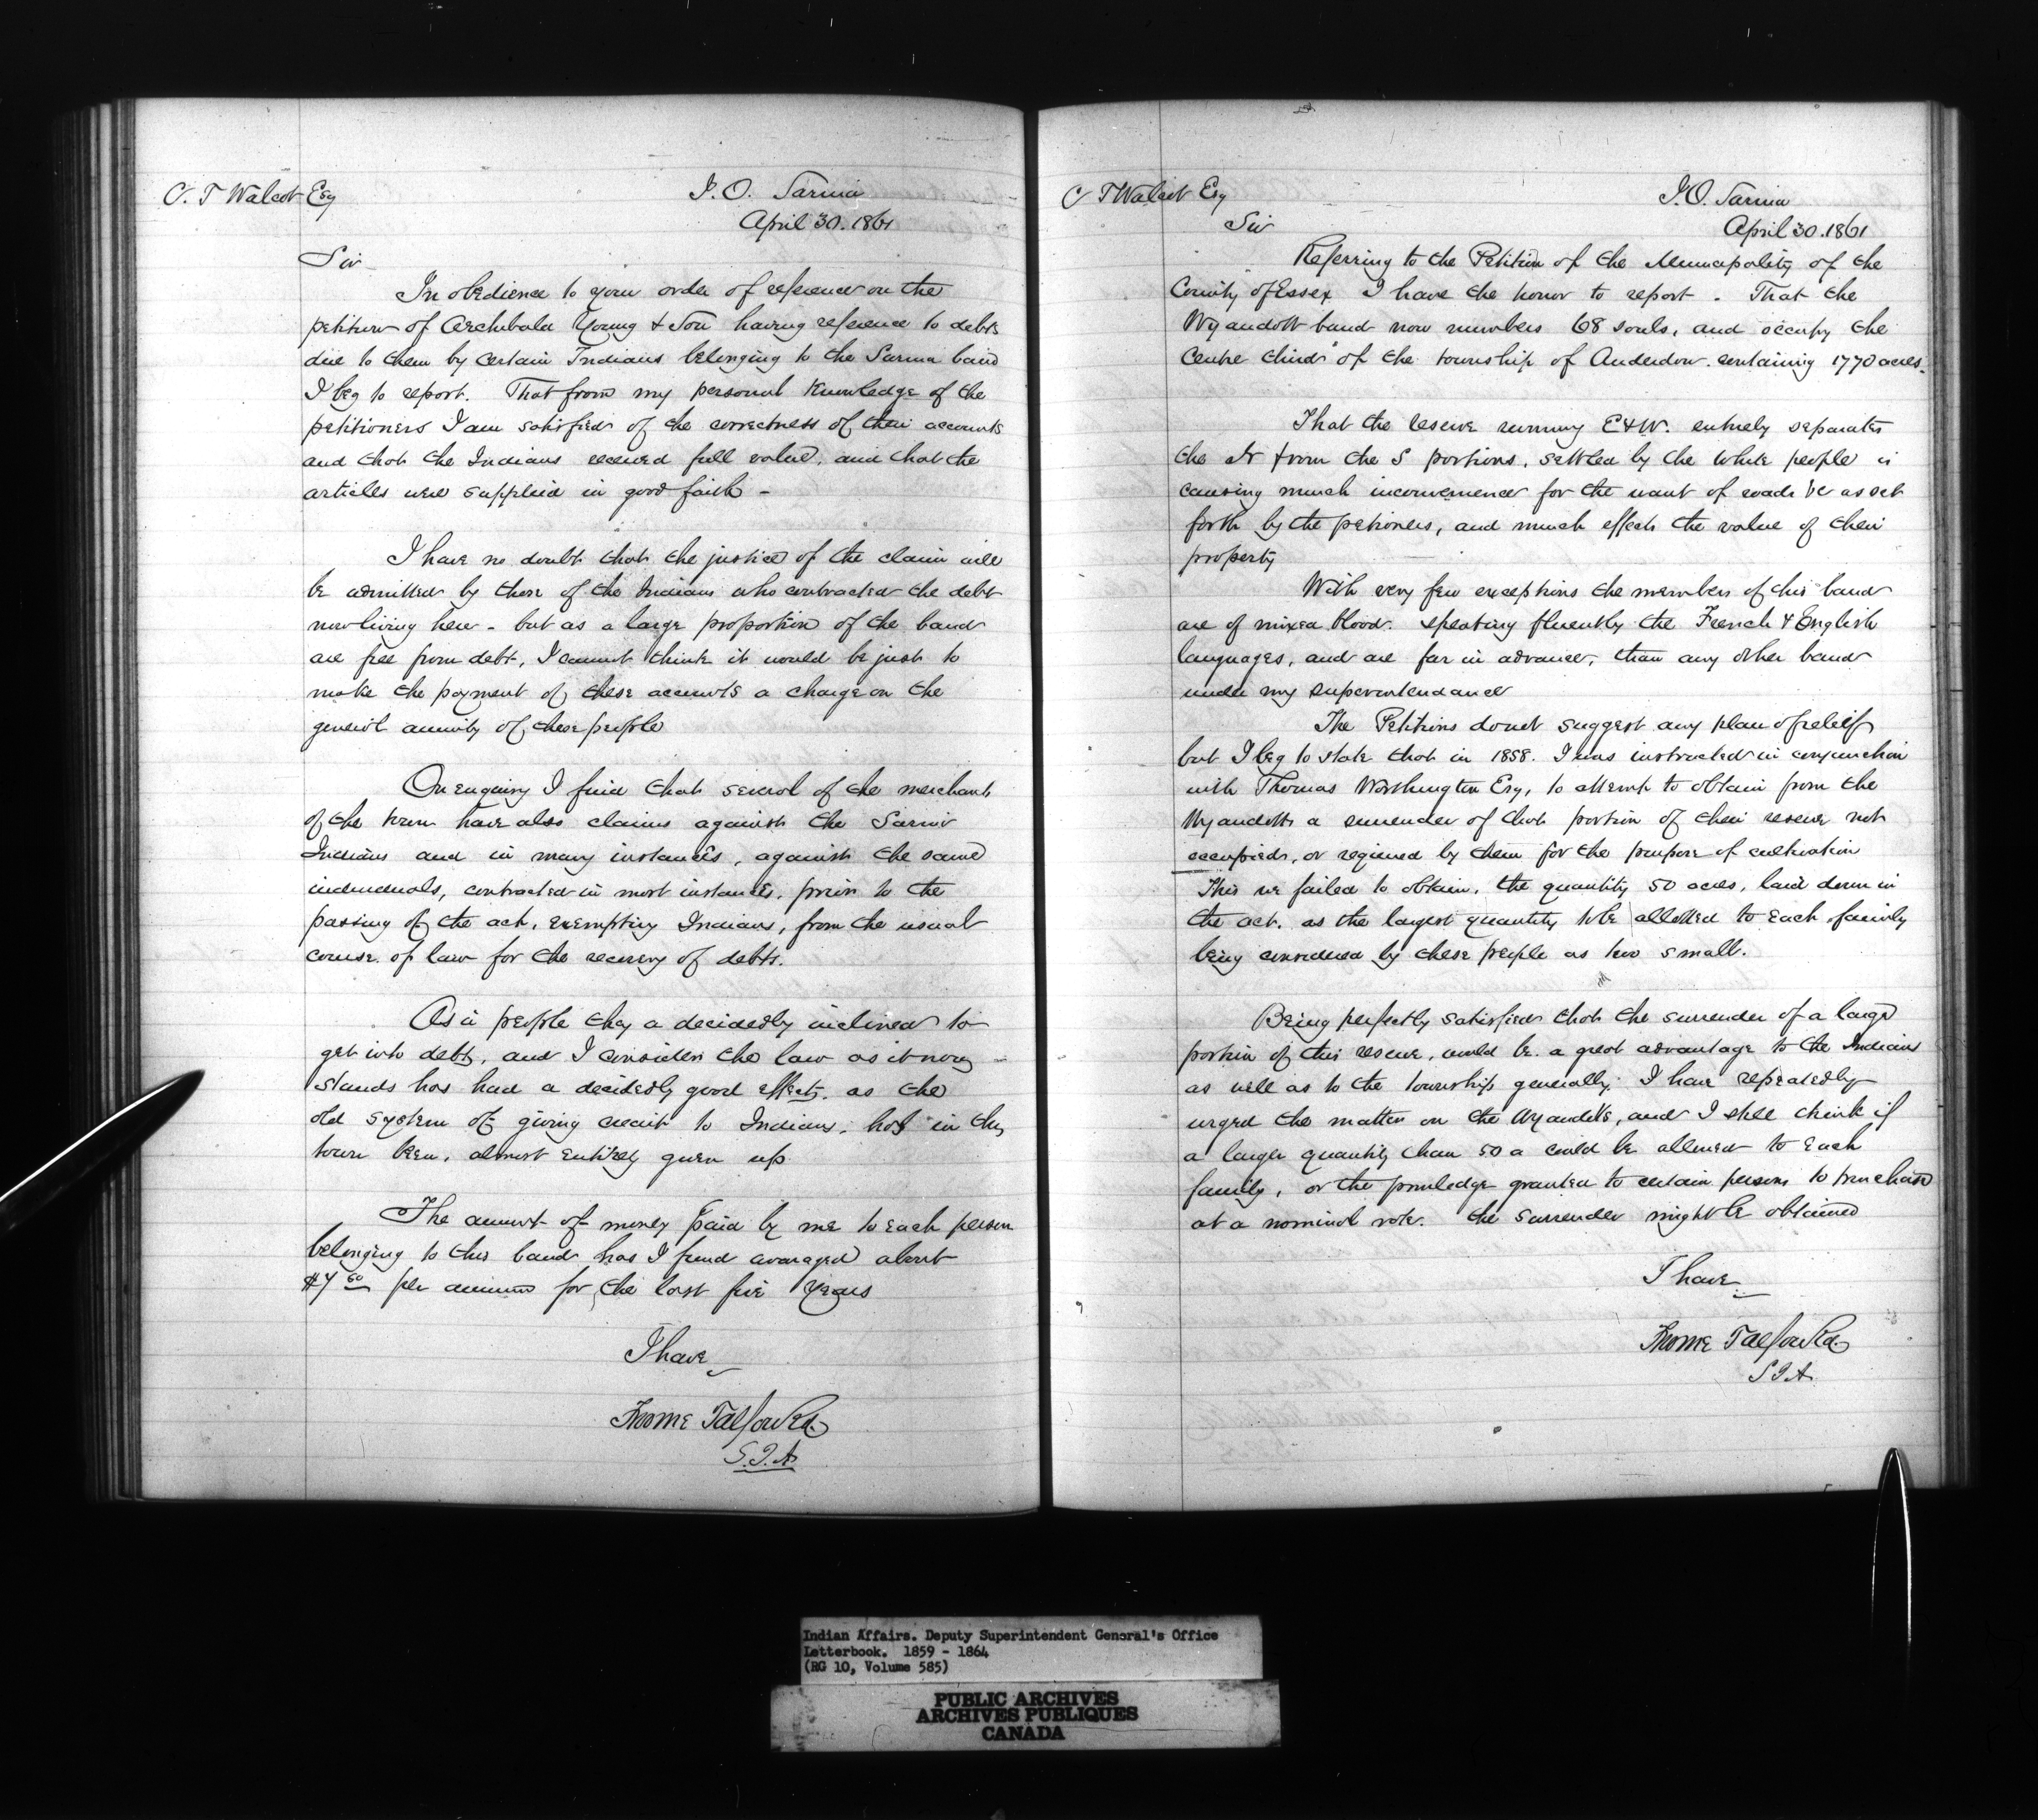 C. T Walcot Esq
I. O. Sarnia
April 30. 1861
Sir
In obedience to your order of reference on the
petition of Archibald Young & Son having reference to debts
due to them by certain Indians belonging to the Sarnia band
I beg to report. That from my personal knowledge of the
petitioners I am satisfied of the correctness of their accounts
and that the Indians received full value, and that the
articles were supplied in good faith -
I have no doubt that the justice of the claim will
be admitted by those of the Indians who contracted the debt
now living here - but as a large proportion of the band
are free from debt, I cannot think it would be just to
make the payment of these accounts a charge on the
general annuity of these people
On enquiry I find that several of the merchants
of the town have also claims against the Sarnia
Indians and in many instances, against the same
individuals, contracted in most instances, prior to the
passing of the act, exempting Indians, from the usual
course of law for the recovery of debts.
As a people they a decidedly inclined to
get into debt, and I consider the law as it now
stands has had a decidedly good effect, as the
old system of giving credit to Indians, has in this
town been, almost entirely given up
The amount of money paid by me to each person
belonging to this band has I find averaged about
$7 50 per annum for the last five years
I have
Froome Talfourd
S.I.A
C T Walcot Esq
I.O. Sarnia
April 30. 1861
Sir
Referring to the Petition of the Municipality of the
County of Essex I have the honor to report. That the
Wyandott band now numbers 68 souls, and occupy the
centre third of the township of Anderdon. containing 1770 acres.
That the reserve running E & W. entirely separates
the N from the S portions, settled by the white people is
causing much inconvenience for the want of roads &c as set
forth by the petioners, and much effects the value of their
property
With very few exceptions the members of this band
are of mixed blood. speaking fluently the French & English
languages, and are far in advance, than any other band
under my superintendance
The Petitions do not suggest any plan of releif
but I beg to state that in 1858. I was instructed in conjunction
with Thomas Worthington Esq, to attempt to obtain from the
Wyandotts a surrender of that portion of their reserve not
occupied, or reqiured by them for the purpose of cultivation
This we failed to obtain, the quantity 50 acres, laid down in
the act. as the largest quantity to be allotted to each family
being considered by these people as too small.
Being perfectly satisfied that the surrender of a large
portion of this reserve, would be a great advantage to the Indians
as well as to the township generally, I have repeatedly
urged the matter on the Wyandotts, and I still think if
a larger quantity than 50 a could be allowed to each
family, or the priviledge granted to certain persons to purchase
at a nominal rate. the surrender might be obtained
I have
Froome Talfourd
S I A
Indian Affairs. Deputy Superintendent General's Office
Letterbook. 1859 - 1864
(RG 10, Volume 585)
PUBLIC ARCHIVES
ARCHIVES PUBLIQUES
CANADA